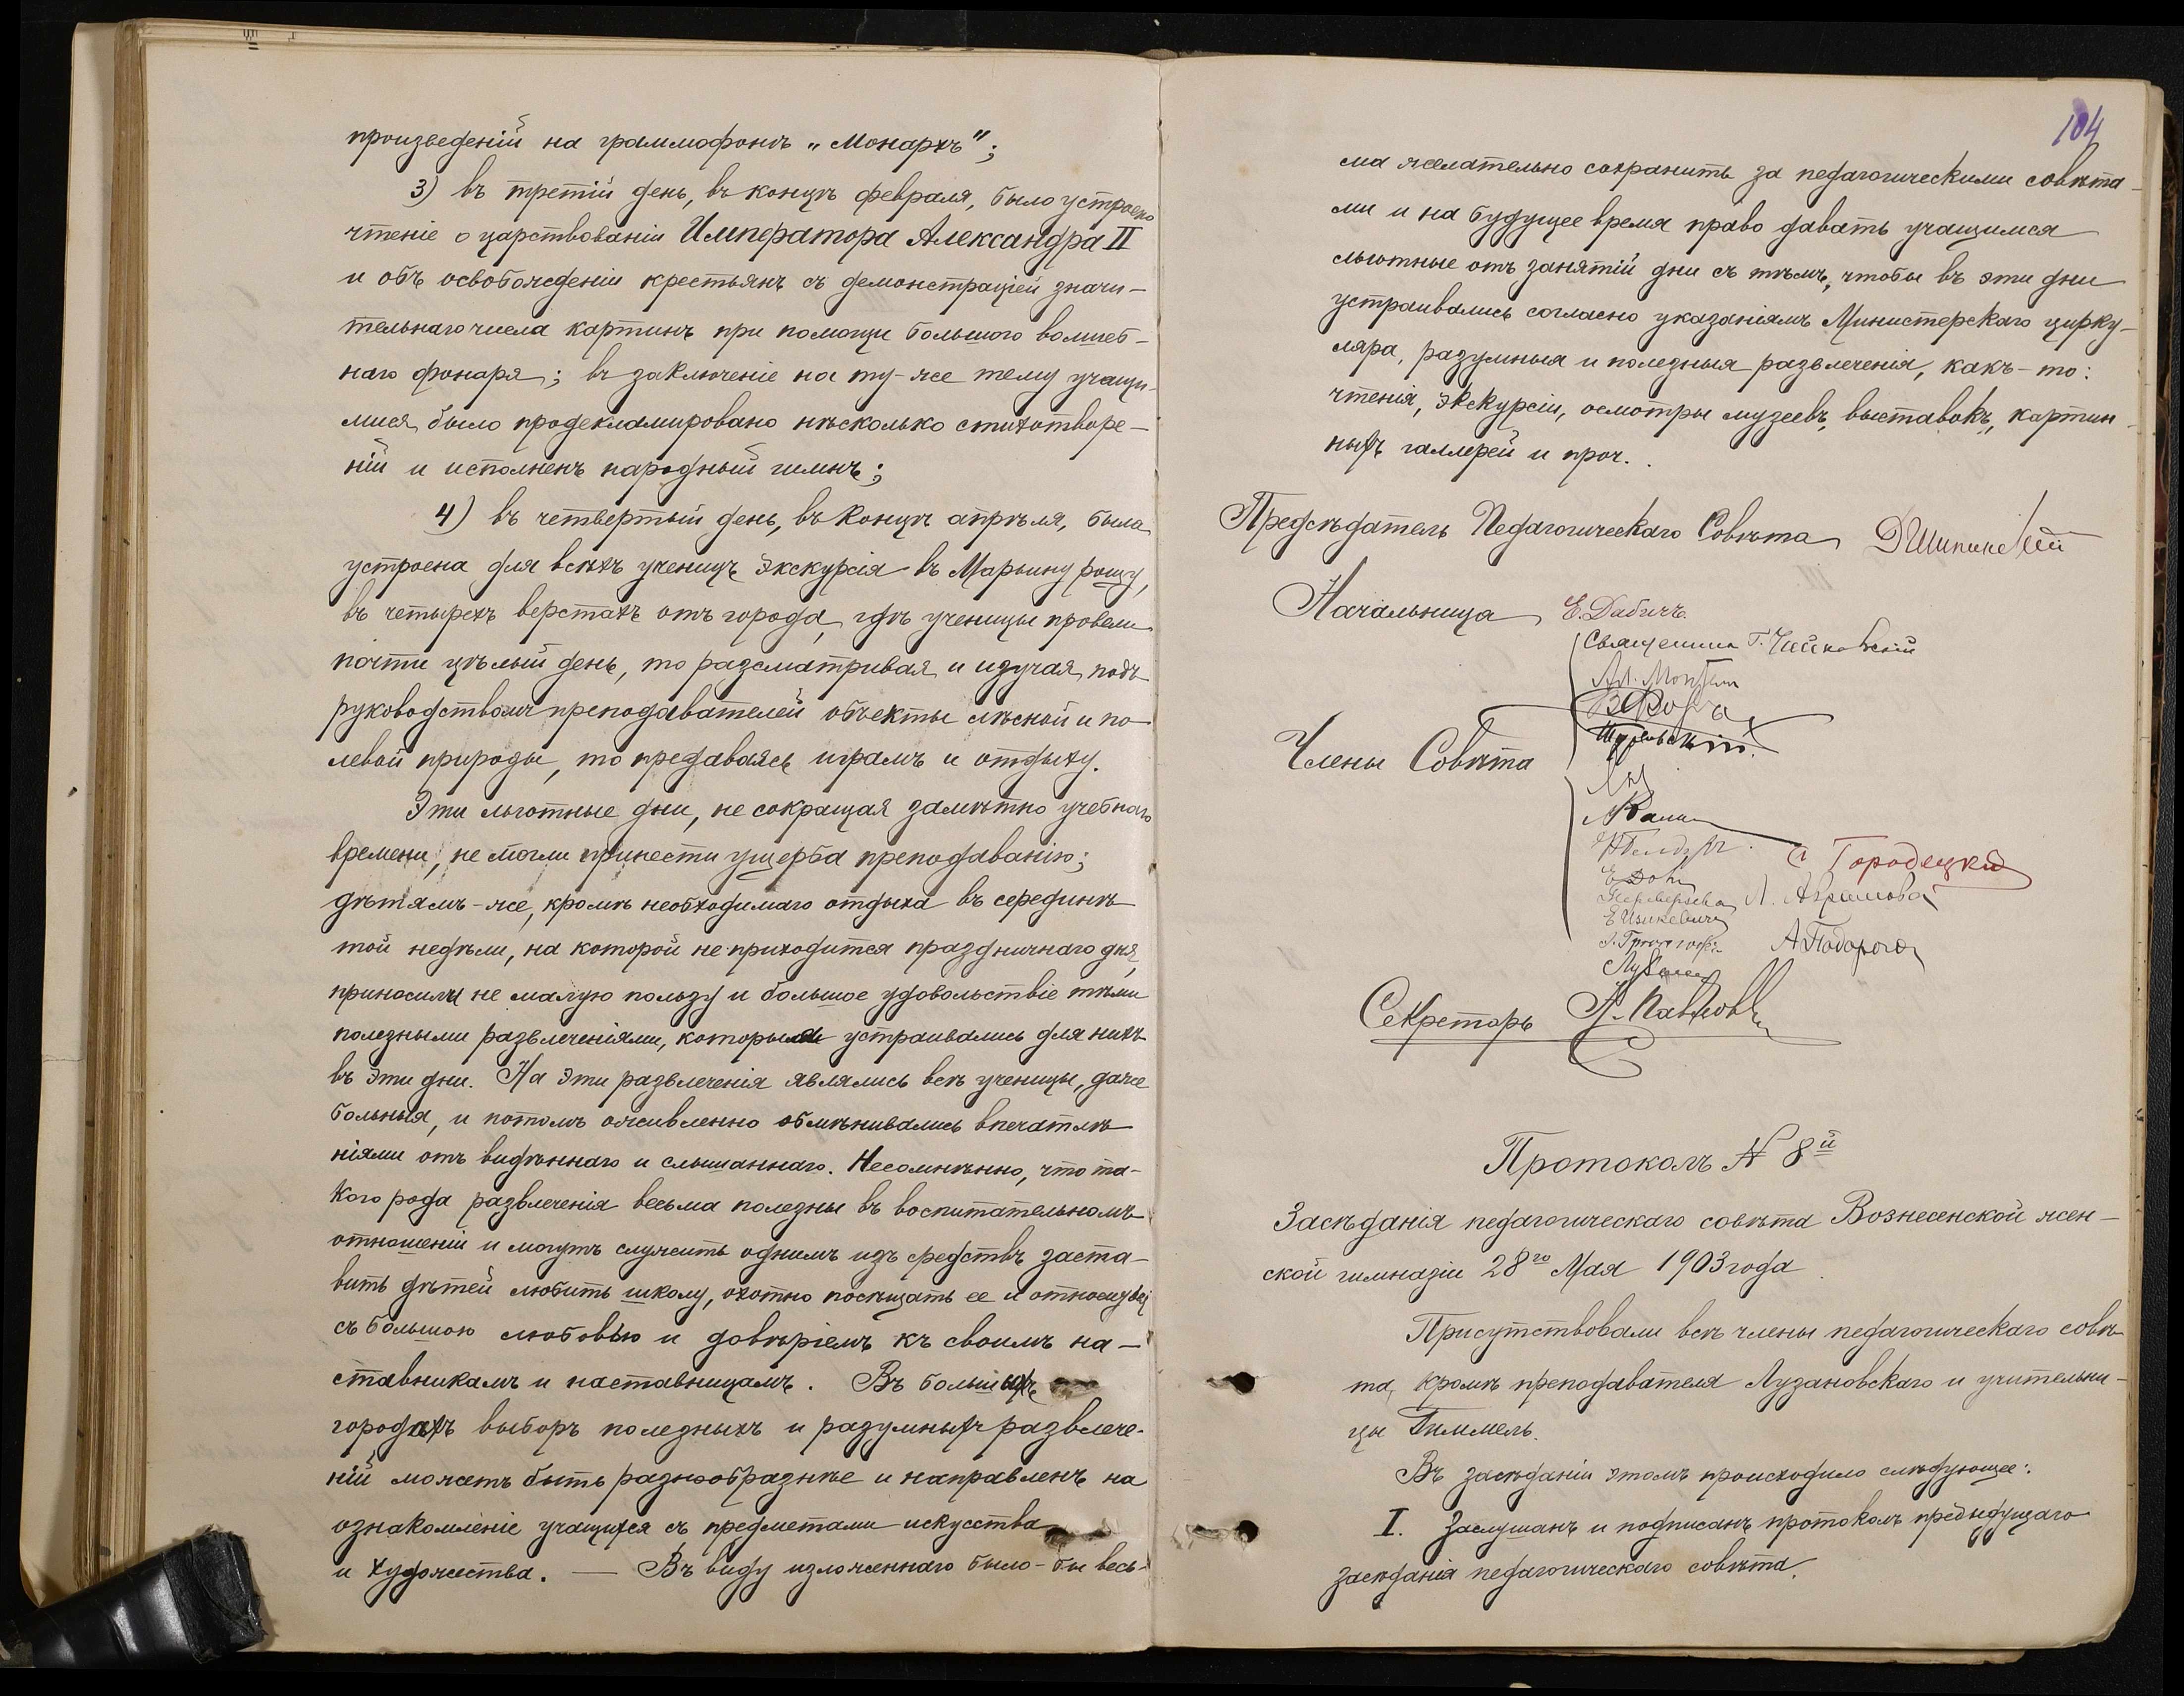 произведеній на граммофонѣ „Монархъ";
3) въ третій день, въ концѣ февраля, было устроено
чтеніе о царствованіи Императора Александра II
и объ освобожденіи крестьянъ съ демонстраціей значи-
тельнаго числа картинъ при помощи большого волшеб-
наго фонаря; въ заключеніе на ту-же тему учащи-
мися было продекламировано нѣсколько стихотворе-
ній и исполненъ народный гимнъ;
4) въ четвертый день, въ концѣ апрѣля, была
устроена для всѣхъ ученицъ экскурсія въ Марьину рощу,
въ четырехъ верстахъ отъ города, гдѣ ученицы провели
почти цѣлый день, то разсматривая и изучая подъ
руководствомъ преподавателей объекты лѣсной и по-
левой природы, то предаваясь играмъ и отдыху.
Эти льготные дни, не сокращая замѣтно учебнаго
времени, не могли принести ущерба преподаванію;
дѣтямъ-же, кромѣ необходимаго отдыха въ серединѣ
той недѣли, на которой не приходится праздничнаго дня,
приносили не малую пользу и большое удовольствіе тѣми
полезными развлеченіями, которыя устраивались для нихъ
въ эти дни. На эти развлеченія являлись всѣ ученицы, даже
больныя, и потомъ оживленно обмѣнивались впечатлѣ-
ніями отъ видѣннаго и слышаннаго. Несомнѣнно, что та-
кого рода развлеченія весьма полезны въ воспитательномъ
отношеніи и могутъ служить однимъ изъ средствъ заста-
вить дѣтей любить школу, охотно посѣщать ее и относиться
съ большою любовью и довѣріемъ къ своимъ на-
ставникамъ и наставницамъ. Въ большихъ
городахъ выборъ полезныхъ и разумныхъ развлече-
ній можетъ быть разнообразнѣе и направленъ на
ознакомленіе учащихся съ предметами искусства
и художества. — Въ виду изложеннаго было-бы весь-
104
ма желательно сохранить за педагогическими совѣта-
ми и на будущее время право давать учащимся
льготные отъ занятій дни съ тѣмъ, чтобы въ эти дни
устраивались согласно указаніямъ Министерскаго цирку-
ляра, разумныя и полезныя развлеченія, какъ-то:
чтенія, экскурсіи, осмотры музеевъ, выставокъ, картин-
ныхъ галлерей и проч.
Предсѣдатель Педагогическаго Совѣта
Начальница Е. Дабичъ.
Священникъ Г. Чайковскій
Члены Совѣта
Городецкая
Переверзева Л. Абрамова
Е.
А. Подорога
Секретарь Н. Павловъ
Протоколъ № 8й
Засѣданія педагогическаго совѣта Вознесенской жен-
ской гимназіи 28го Мая 1903 года.
Присутствовали всѣ члены педагогическаго совѣ-
та, кромѣ преподавателя Лузановскаго и учительни-
цы Гиммель.
Въ засѣданіи этомъ происходило слѣдующее:
I. Заслушанъ и подписанъ протоколъ предыдущаго
засѣданія педагогическаго совѣта.